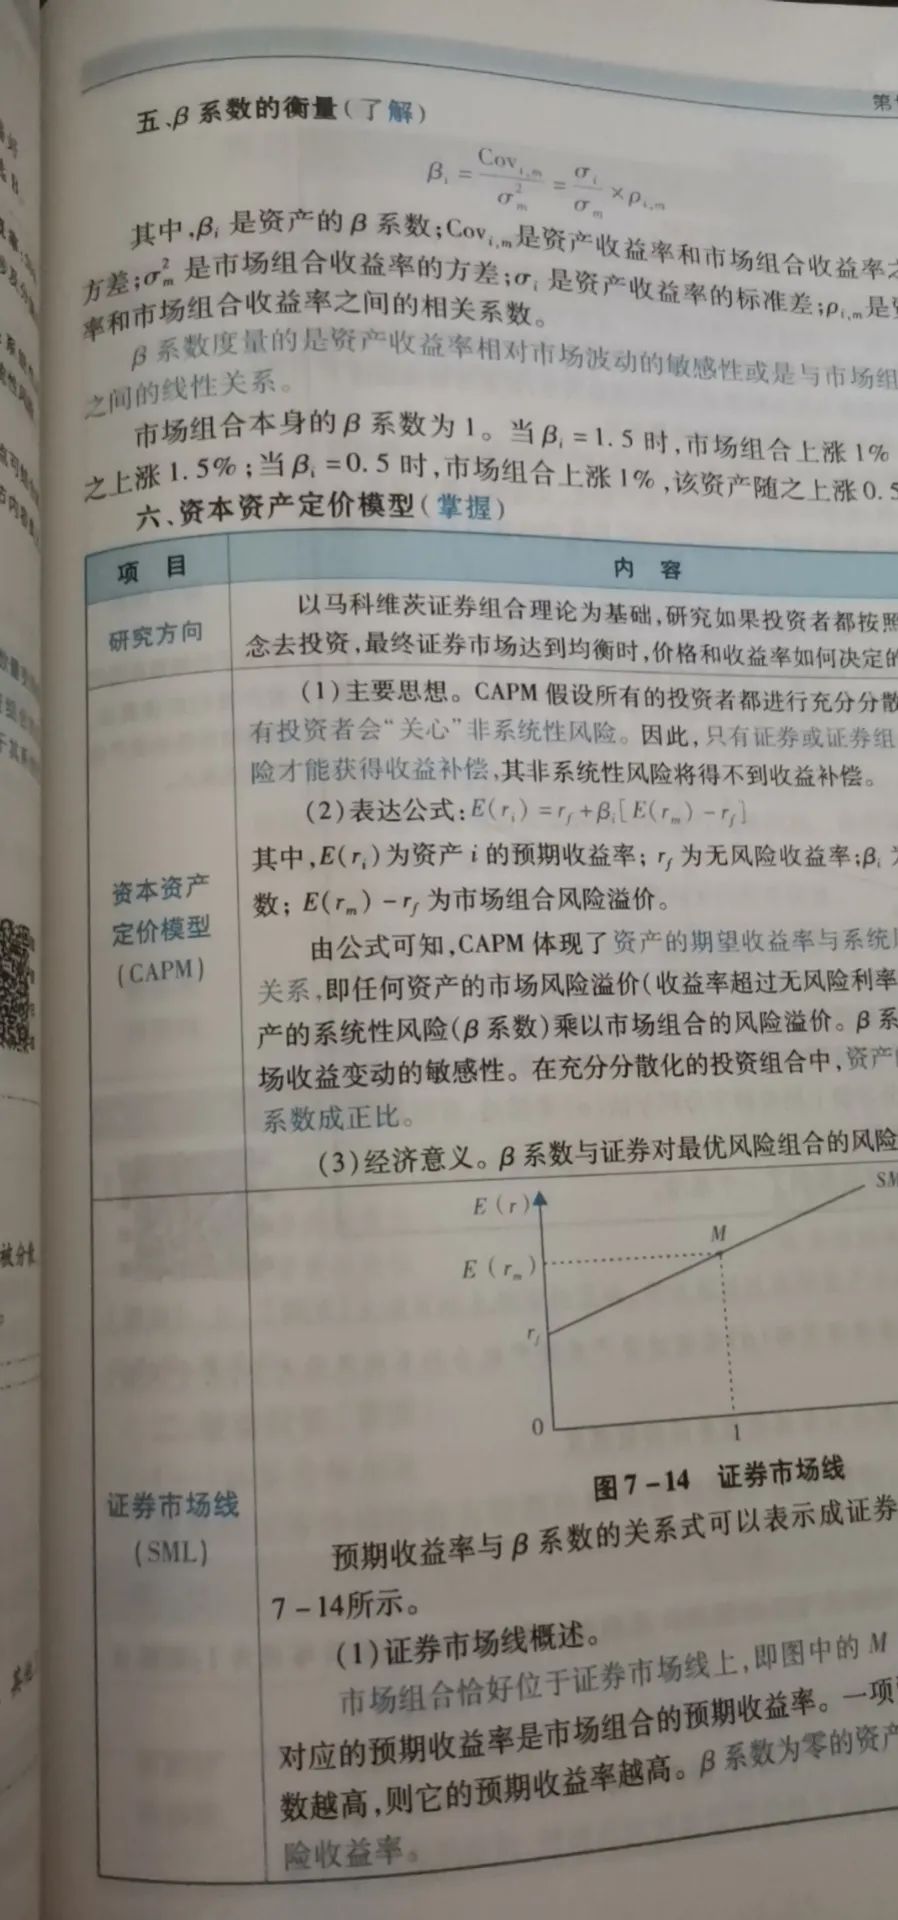 第
五、β系数的衡量(了解)
βᵢ = Covᵢ,ₘ / σ²ₘ = σᵢ / σₘ × ρᵢ,ₘ
其中,βᵢ是资产的β系数;Covᵢ,ₘ是资产收益率和市场组合收益率之
方差;σ²ₘ是市场组合收益率的方差;σᵢ是资产收益率的标准差;ρᵢ,ₘ是
率和市场组合收益率之间的相关系数。
β系数度量的是资产收益率相对市场波动的敏感性或是与市场组
之间的线性关系。
市场组合本身的β系数为1。当βᵢ=1.5时,市场组合上涨1%
之上涨1.5%;当βᵢ=0.5时,市场组合上涨1%,该资产随之上涨0.5
六、资本资产定价模型(掌握)
项 目 内 容
研究方向
以马科维茨证券组合理论为基础,研究如果投资者都按照
念去投资,最终证券市场达到均衡时,价格和收益率如何决定的
资本资产
定价模型
(CAPM)
(1)主要思想。CAPM假设所有的投资者都进行充分分散
有投资者会“关心”非系统性风险。因此,只有证券或证券组
险才能获得收益补偿,其非系统性风险将得不到收益补偿。
(2)表达公式:E(rᵢ)=r_f+βᵢ[E(rₘ)-r_f]
其中,E(rᵢ)为资产i的预期收益率;r_f为无风险收益率;βᵢ
数;E(rₘ)-r_f为市场组合风险溢价。
由公式可知,CAPM体现了资产的期望收益率与系统
关系,即任何资产的市场风险溢价(收益率超过无风险利率
产的系统性风险(β系数)乘以市场组合的风险溢价。β系
场收益变动的敏感性。在充分分散化的投资组合中,资产
系数成正比。
(3)经济意义。β系数与证券对最优风险组合的风险
证券市场线
(SML)
E(r)
SM
M
E(rₘ)
r_f
0
1
图7-14 证券市场线
预期收益率与β系数的关系式可以表示成证券
7-14所示。
(1)证券市场线概述。
市场组合恰好位于证券市场线上,即图中的M
对应的预期收益率是市场组合的预期收益率。一项
数越高,则它的预期收益率越高。β系数为零的资产
险收益率。